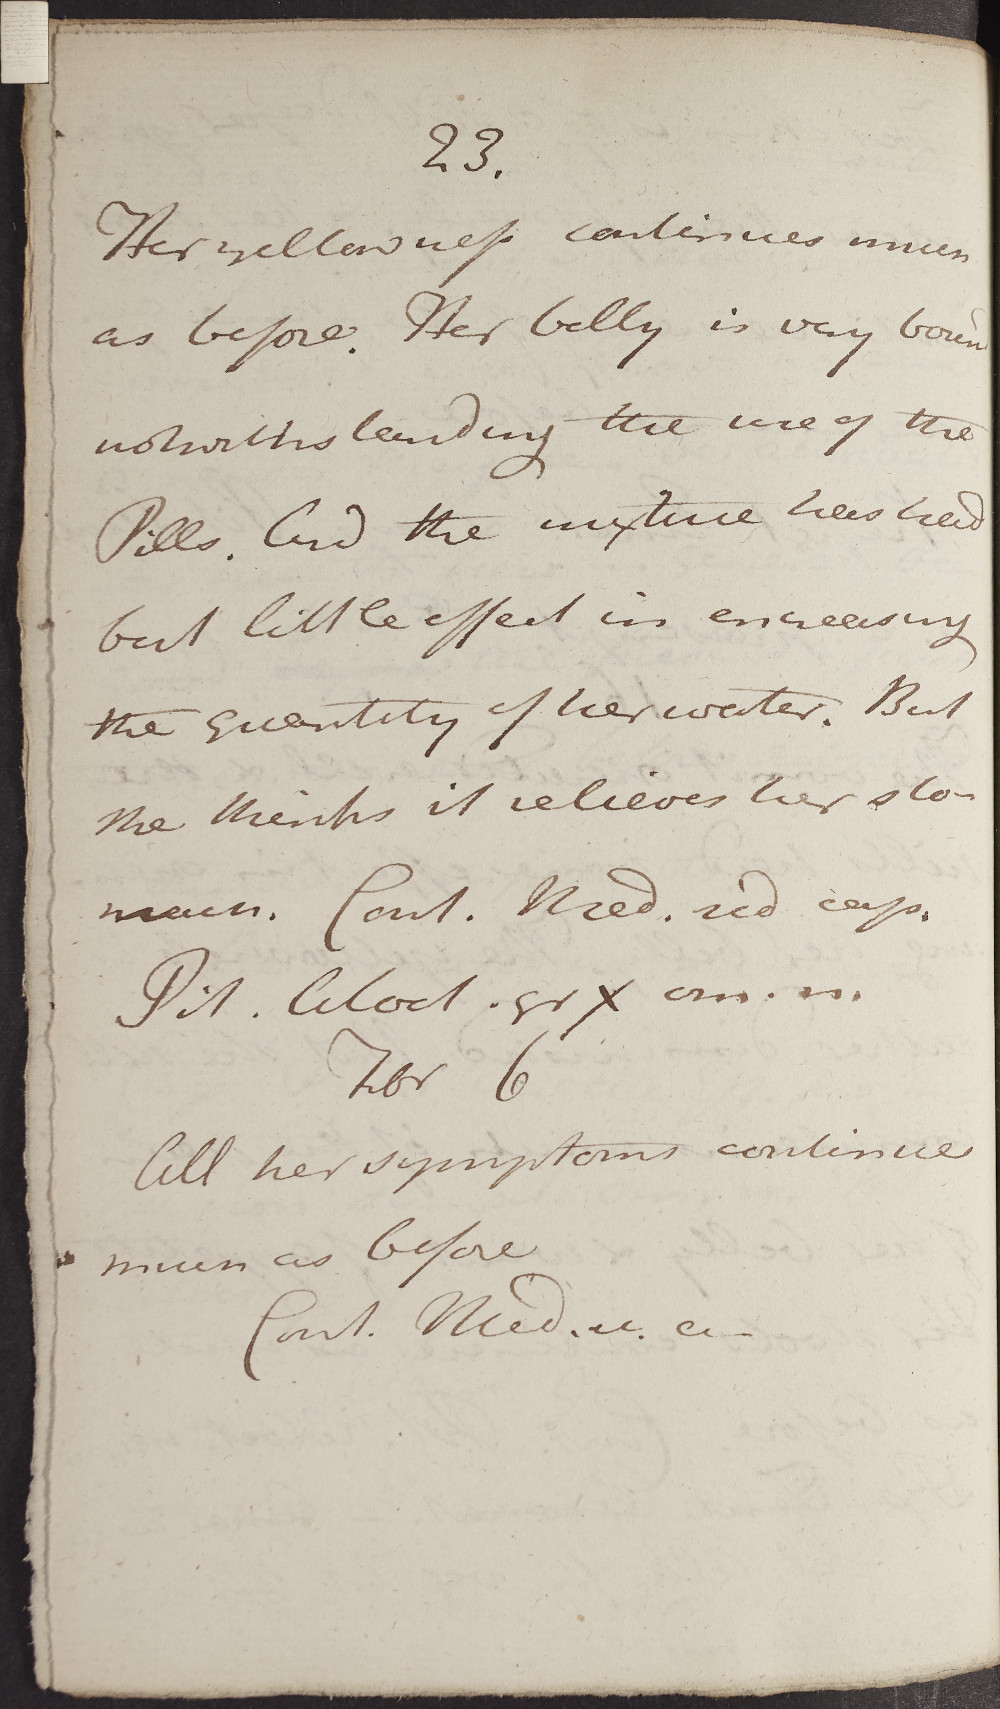 23.
Her yellowness continues much
as before. Her belly is very bound
notwithstanding the use of the
Pills. And the mixture has had
but little effect in encreasing
the quantity of her water. But
she thinks it relieves her sto-
mach. Cont. Med. sed cap.
Pil. Aloet. gr x om. n.
7br 6
All her symptoms continue
much as before
Cont. Med. u. a-